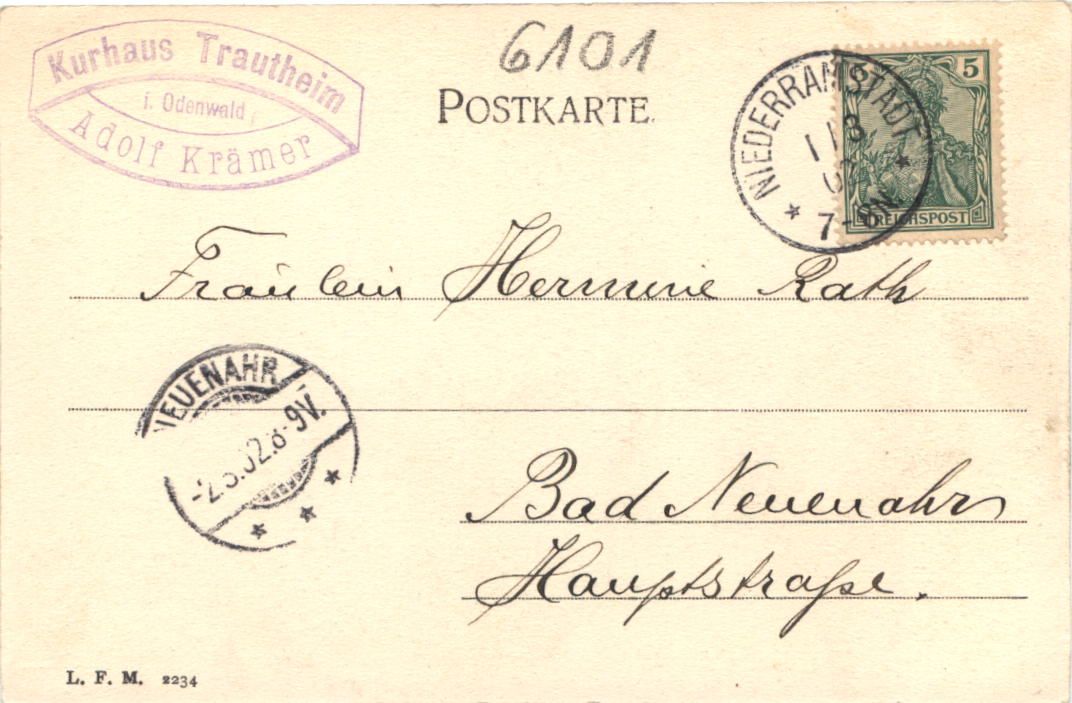 Kurhaus Trautheim
i. Odenwald
Adolf Krämer
6101
POSTKARTE.
NIEDERRAMSTADT
7-8N
5
REICHSPOST
Fräulein Hermine Rath
NEUENAHR
-2.8.02.8-9V.
Bad Neuenahr
Hauptstraße.
L. F. M. 2234